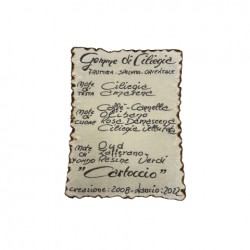 Gemme di Ciliegia
FRUTTATA - SPEZIATA - ORIENTALE
Note di TESTA
Ciliegia
Amarena
Note di CUORE
Caffè - Cannella
Olibano
Rosa Damascena
Ciliegia
Note di FONDO
Oud
Zafferano
Resine Verdi
"Cartoccio"
creazione: 2008 - 2022